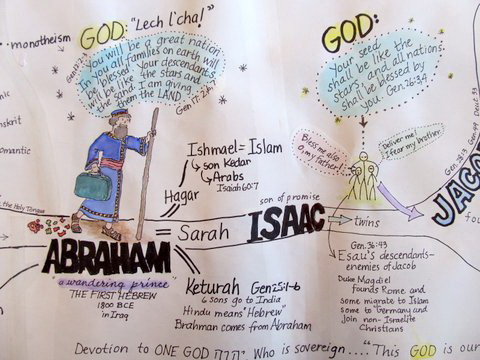 monotheism
GOD: "Lech l'cha!"
Gen 12:2-3
You will be a great nation
In you all families on earth will
be blessed. Your descendants
will be like the stars and
the sand. I am giving
them the LAND.
Gen 17:
GOD:
Your seed
shall be like the
stars, and all nations
shall be blessed by
you. Gen. 26:3,4
nskrit
omantic
the Holy Tongue
Ishmael = Islam
son Kedar
Arabs
Isaiah 60:7
Hagar
Bless me also
O my father!
Deliver me!
I fear my brother
son of promise
= Sarah
ISAAC
twins
JACO
ABRAHAM
"a wandering prince"
THE FIRST HEBREW
1800 BCE
in Iraq
Keturah Gen 25:1-6
6 sons go to India
Hindu means "Hebrew"
Brahman comes from Abraham
Gen. 36:43
Esau's descendants-
enemies of Jacob
Duke Magdiel
founds Rome and
some migrate to Islam
some to Germany and
join non-Israelite
Christians
fou
Devotion to ONE GOD יהוה Who is sovereign...."This GOD is our